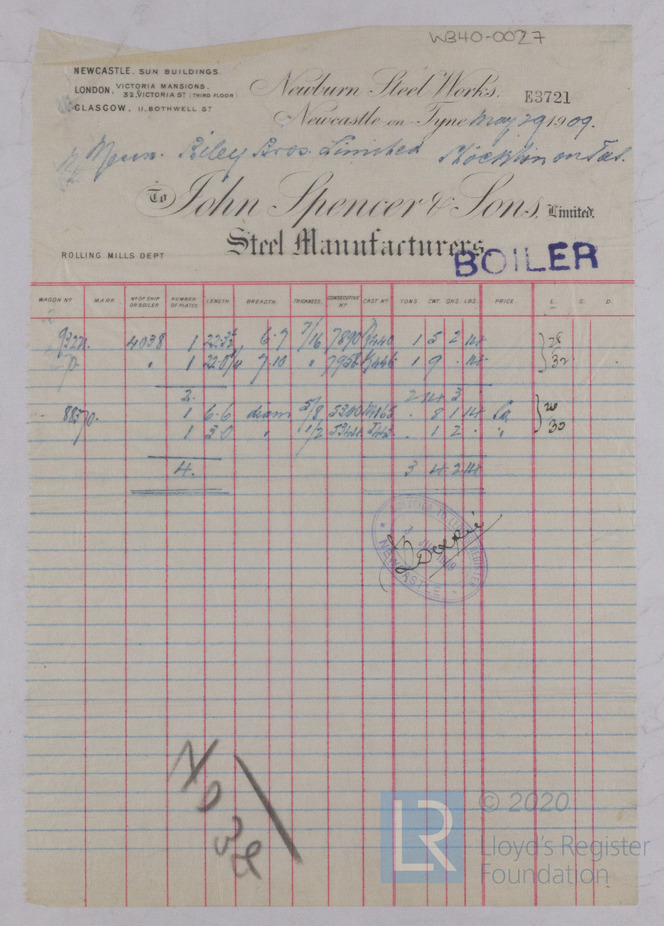 W340-0027
NEWCASTLE. SUN BUILDINGS.
LONDON. VICTORIA MANSIONS.
32, VICTORIA ST (THIRD FLOOR)
GLASGOW, 11, BOTHWELL ST
Newburn Steel Works.
E3721
Newcastle on Tyne May 29 1909.
Messrs. Riley Bros. Limited Stockton on Tees.
To John Spencer & Sons, Limited.
Steel Manufacturers
ROLLING MILLS DEPT
BOILER
WAGON NO MARK. NO OF SHIP OR BOILER NUMBER OF PLATES LENGTH BREADTH. THICKNESS. CONSECUTIVE NO CAST NO TONS CWT. QRS. LBS. PRICE. £. S. D.
4038 1 6.7 7/16 7890 1 5 2 14 28
" 1 7.10 " 7958 1 9 . 14 32
2. 2 14 3 .
88570. 1 6.6 diam 5/8 . 8 1 14 20
1 3.0 " 1/2 . 1 2 . " 30
4. 3 4 2 14
NEWCASTLE
No 32
LR
© 2020
Lloyd's Register
Foundation